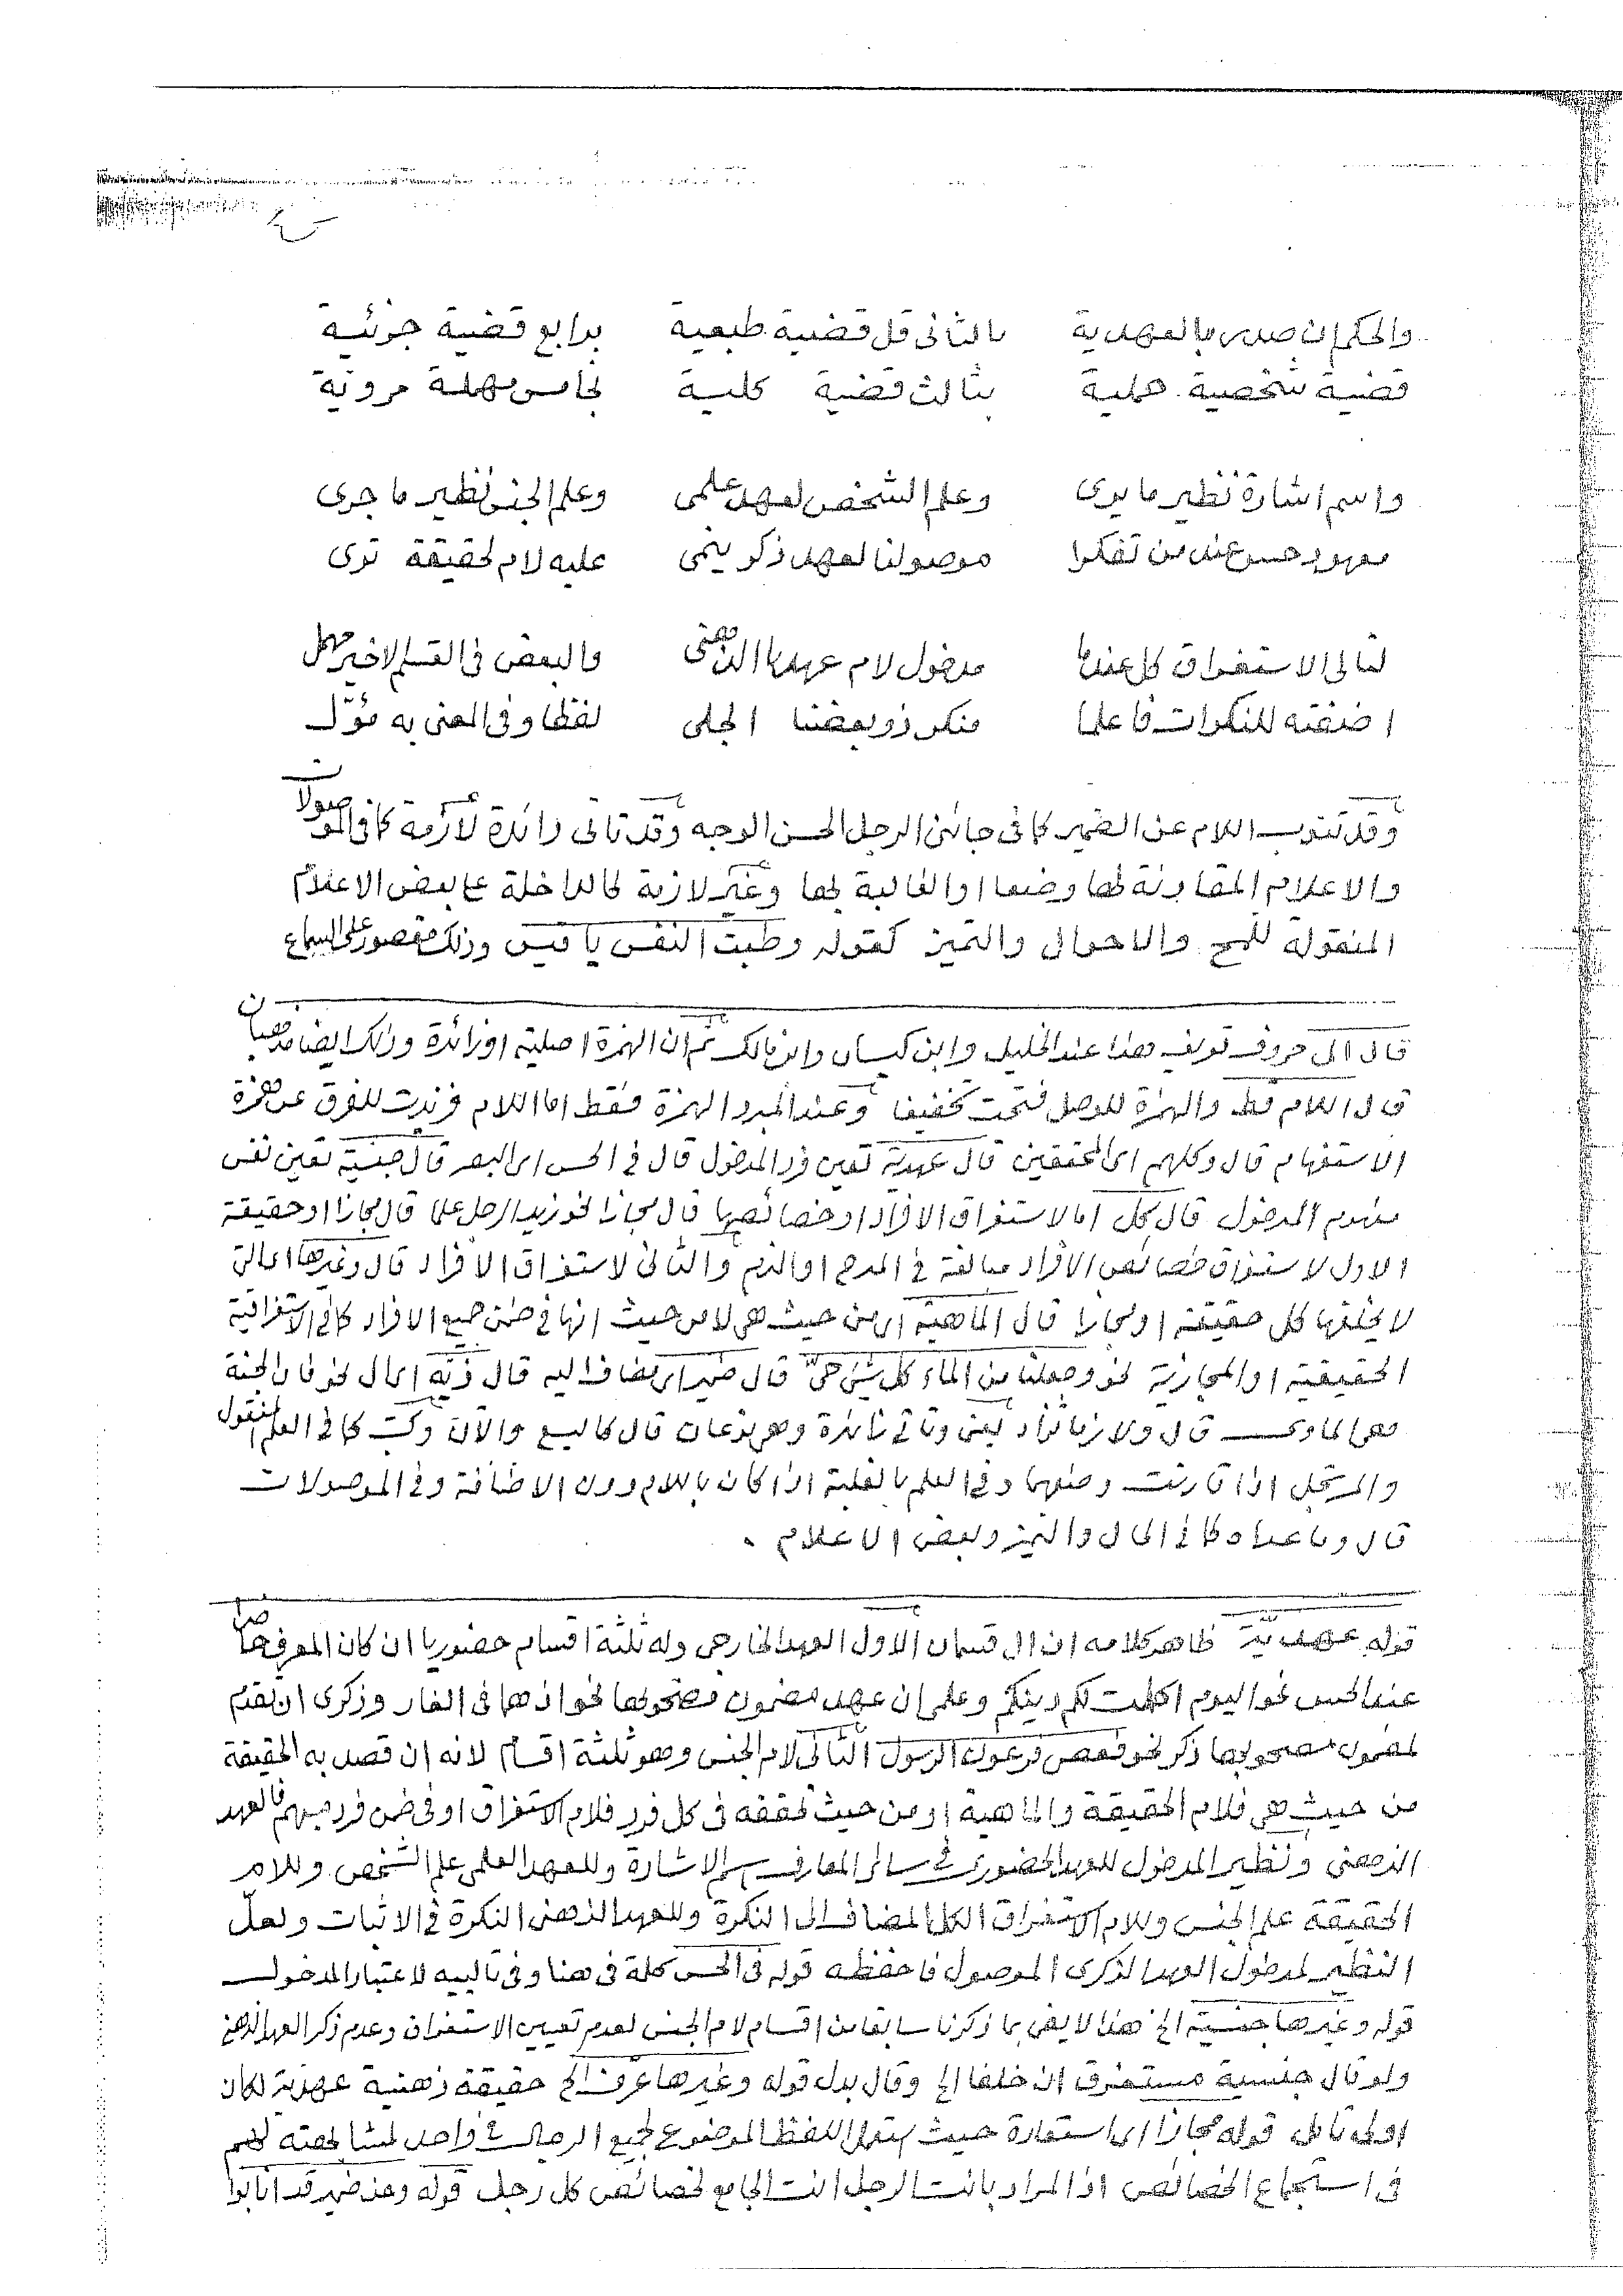 والحكم ان صدر بالعهدية بالثانى قل قضية طبعية برابع قضية جزئية
قضية شخصية حملية بثالث قضية كلية بخامس مهملة مروية
واسم اشارة نظير ما يرى وعلم الشخص لعهد علمى وعلم الجنس نظير ما جرى
معهود حس عند من تفكرا موصولنا لعهد ذكر ينمى عليه لام لحقيقة ترى
لتالى الاستغراق كل عندما مدخول لام عهدنا الذهنى والبعض فى القسم الاخير مهمل
اضفته للنكرات فاعلما منكر ذو بعضنا الجلى لفظا وفى المعنى به مؤوّل
وقد تنوب اللام عن الضمير كما فى جائنى الرجل الحسن الوجه وقد تاتى زائدة لازمة كما فى الموصولات
والاعلام المقارنة لها وضعا او الغالبة بها وغير لازمة كالداخلة على بعض الاعلام
المنقولة للمح والاحوال والتميز كقوله وطبت النفس يا قيس وذلك مقصور على السماع
قال الى حروف تعريف هذا عند الخليل وابن كيسان وابن مالك ثم ان الهمزة اصلية او زائدة وذلك ايضا مذهبان
قال اللام فقط والهمزة للوصل فتحت تخفيفا وعند المبرد الهمزة فقط اما اللام فزيدت للفرق عن همزة
الاستفهام قال وكلهم اى المحققين قال عهدية تعين فرد المدخول قال فى الحس اى البصر قال جنسية تعين نفس
مفهوم المدخول قال كل اما لاستغراق الافراد او خصائصها قال مجازا نحو زيد الرجل علما قال مجازا او حقيقة
الاول لاستغراق خصائص الافراد مبالغة فى المدح او الذم والثانى لاستغراق الافراد قال وغيرها اى التى
لا يخلفها كل حقيقة او مجازا قال الماهية اى من حيث هى لا من حيث انها فى ضمن جميع الافراد كما فى الاستغراقية
الحقيقية او المجازية نحو وجعلنا من الماء كل شئ حىّ قال ضمير اى مضاف اليه قال ذيّه اى ال نحو فان الجنة
هى الماوى قال ولازما تزاد يعنى وتاتى زائدة وهى نوعان قال كاليسع والآن وكت كما فى العلم المنقول
والمرتجل اذا قارنت وضعهما وفى العلم بالغلبة اذا كان باللام دون الاضافة وفى الموصولات
قال وما عداه كما فى الحال والتميز وبعض الاعلام .
قوله عهدية ظاهر كلامه ان ال قسمان الاول العهد الخارجى وله ثلثة اقسام حضوريا ان كان المعرف حاضرا
عند الحس نحو اليوم اكملت لكم دينكم وعلمى ان عهد مضمون مصحوبها نحو اذهما فى الغار وذكرى ان تقدم
لمضمون مصحوبها ذكر نحو فعصى فرعون الرسول الثانى لام الجنس وهو ثلثة اقسام لانه ان قصد به الحقيقة
من حيث هى فلام الحقيقة والماهية او من حيث تحققه فى كل فرد فلام الاستغراق او فى ضمن فرد مبهم فالعهد
الذهنى ونظير المدخول للعهد الحضورى فى سائر المعارف اسم الاشارة وللعهد العلمى علم الشخص وللام
الحقيقة علم الجنس وللام الاستغراق الكل المضاف الى النكرة وللعهد الذهنى النكرة فى الاثبات ولعلّ
النظير لمدخول العهد الذكرى الموصول فاحفظه قوله فى الحس كلمة فى هنا وفى تالييه لاعتبار المدخول
قوله وغيرها جنسية الخ هذا لا يفى بما ذكرنا سابقا من اقسام لام الجنس لعدم تعيين الاستغراق وعدم ذكر العهد الذهنى
ولو قال جنسية مستغرق ان خلفا الخ وقال بدل قوله وغيرها عرف الخ حقيقة ذهنية عهدية لكان
اولى تامل قوله مجازا اى استعارة حيث استعمل اللفظ الموضوع لجميع الرجال فى واحد لمشابهته لهم
فى استجماع الخصائص اذ المراد بانت الرجل انت الجامع لخصائص كل رجل قوله وعن ضمير قد انابوا